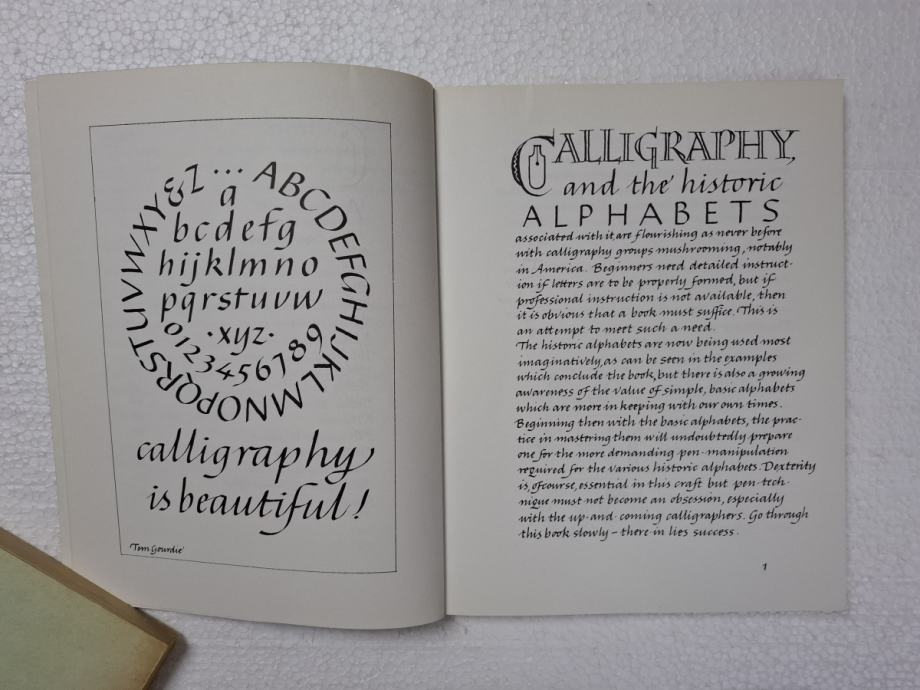 ABCDEFGHIJKLMNOPQRSTUVWXY&Z...
a
bcdefg
hijklmno
pqrstuvw
·xyz·
0123456789
calligraphy
is beautiful!
'Tom Gourdie'
CALLIGRAPHY,
and the historic
ALPHABETS
associated with it, are flourishing as never before
with calligraphy groups mushrooming, notably
in America. Beginners need detailed instruct-
ion if letters are to be properly formed, but if
professional instruction is not available, then
it is obvious that a book must suffice. This is
an attempt to meet such a need.
The historic alphabets are now being used most
imaginatively, as can be seen in the examples
which conclude the book, but there is also a growing
awareness of the value of simple, basic alphabets
which are more in keeping with our own times.
Beginning then with the basic alphabets, the prac-
tice in mastering them will undoubtedly prepare
one for the more demanding pen-manipulation
required for the various historic alphabets. Dexterity
is, of course, essential in this craft but pen-tech-
nique must not become an obsession, especially
with the up-and-coming calligraphers. Go through
this book slowly – there-in lies success.
1